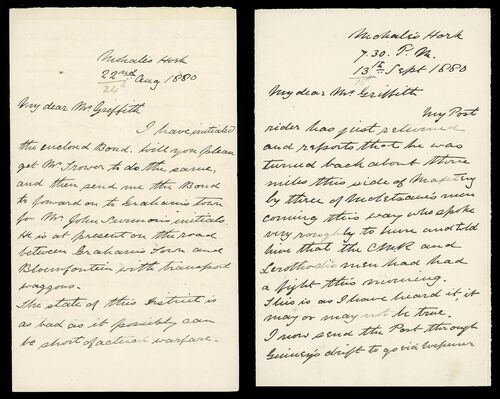 Mohali's Hoek
22nd Aug 1880
24
My dear Mr Griffith
I have initialed
the enclosed Bond. Will you please
get Mr Trower to do the same,
and then send me the Bond
to forward on to Graham's town
for Mr John initials
He is at present on the road
between Graham's Town and
Bloemfontein with transport
waggons.
The state of this District is
as bad as it possibly can
be short of actual warfare.
Mohali's Hoek
7.30. P. M.
13th Sept 1880
My dear Mr Griffith
My Post
rider has just returned
and reports that he was
turned back about three
miles this side of Mafeteng
by three of men
coming this way who spoke
very roughly to him and told
him that the CMR and
Lerothodi's men had had
a fight this morning.
This is as I have heard it, it
may or may not be true.
I now send the Post through
drift to go via Wepener